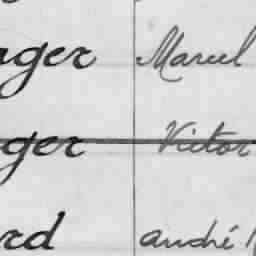 ager Marcel
ger Victor
rd André